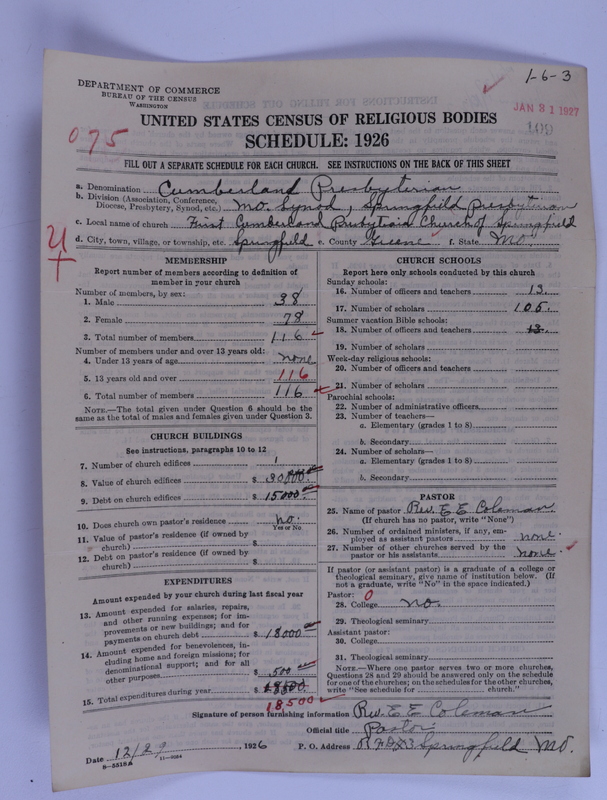 1-6-3
DEPARTMENT OF COMMERCE
BUREAU OF THE CENSUS
WASHINGTON
JAN 31 1927
109
075
UNITED STATES CENSUS OF RELIGIOUS BODIES
SCHEDULE: 1926
FILL OUT A SEPARATE SCHEDULE FOR EACH CHURCH. SEE INSTRUCTIONS ON THE BACK OF THIS SHEET
a. Denomination Cumberland Presbyterian
b. Division (Association, Conference, Diocese, Presbytery, Synod, etc.) Mo. Synod, Springfield Presbyterian
c. Local name of church First Cumberland Presbyterian Church of Springfield
d. City, town, village, or township, etc. Springfield e. County Greene f. State Mo.
MEMBERSHIP
Report number of members according to definition of
member in your church
Number of members, by sex:
1. Male 38
2. Female 78
3. Total number of members 116
Number of members under and over 13 years old:
4. Under 13 years of age none
5. 13 years old and over 116
6. Total number of members 116
NOTE.—The total given under Question 6 should be
same as the total of males and females given under Question 3.
CHURCH BUILDINGS
See instructions, paragraphs 10 to 12
7. Number of church edifices 1
8. Value of church edifices $ 30000.00
9. Debt on church edifices $ 15000.00
10. Does church own pastor's residence no.
Yes or No
11. Value of pastor's residence (if owned by
church) $
12. Debt on pastor's residence (if owned by
church) $
EXPENDITURES
Amount expended by your church during last fiscal year
13. Amount expended for salaries, repairs,
and other running expenses; for im-
provements or new buildings; and for
payments on church debt $ 18000.00
14. Amount expended for benevolences, in-
cluding home and foreign missions; for
denominational support; and for all
other purposes $ 500.00
15. Total expenditures during year $
18,500
CHURCH SCHOOLS
Report here only schools conducted by this church
Sunday schools:
16. Number of officers and teachers 13.
17. Number of scholars 105.
Summer vacation Bible schools:
18. Number of officers and teachers 13.
19. Number of scholars
Week-day religious schools:
20. Number of officers and teachers
21. Number of scholars
Parochial schools:
22. Number of administrative officers
23. Number of teachers—
a. Elementary (grades 1 to 8)
b. Secondary
24. Number of scholars—
a. Elementary (grades 1 to 8)
b. Secondary
PASTOR
25. Name of pastor Rev. E E Coleman
(If church has no pastor, write "None")
26. Number of ordained ministers, if any, em-
ployed as assistant pastors none.
27. Number of other churches served by the
pastor or his assistants none.
If pastor (or assistant pastor) is a graduate of a college or
theological seminary, give name of institution below. (If
not a graduate, write "No" in the space indicated.)
Pastor: 0
28. College no.
29. Theological seminary
Assistant pastor:
30. College
31. Theological seminary
NOTE.—Where one pastor serves two or more churches,
Questions 28 and 29 should be answered only on the schedule
for one of the churches; on the schedules for the other churches,
write "See schedule for church."
Signature of person furnishing information Rev. E E Coleman
Official title Pastor
Date 12/29, 1926 P. O. Address Springfield Mo.
8-5518A 11-9084